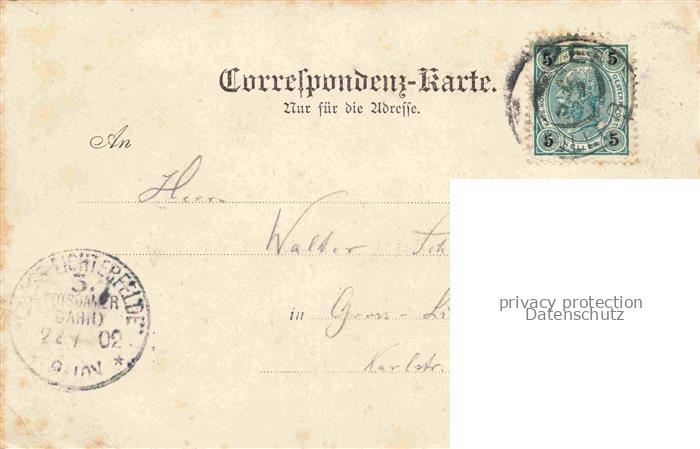 Correspondenz-Karte.
Nur für die Adresse.
An
Herrn
Walter Sch
in Gross-Li
Karlstr.
5 5
5 5
HELLER
LICHTERFELDE
3.
(POTSDAMER
BAHN)
02
9-10V
privacy protection
Datenschutz